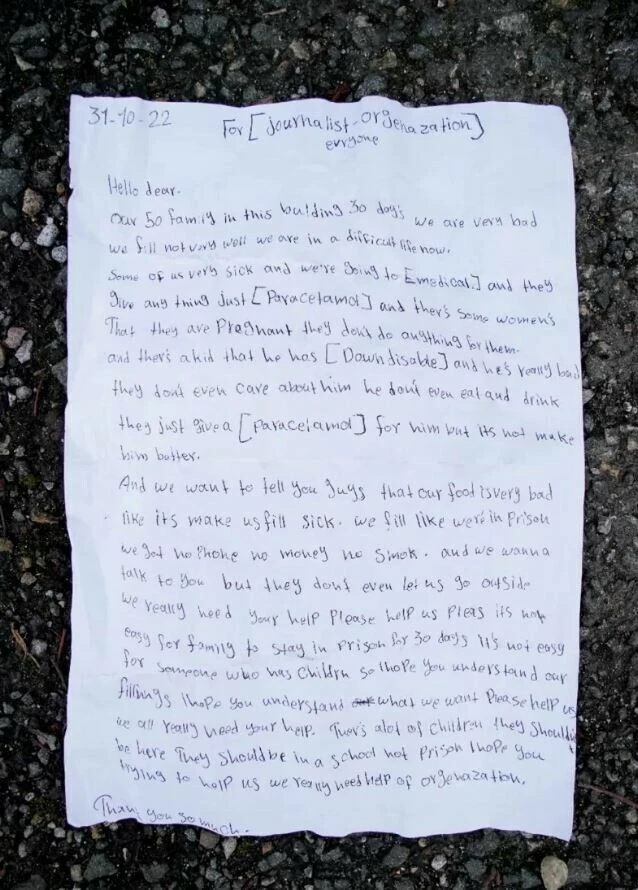 31-10-22
For [journalist-orgenazation]
evryone
Hello dear.
our 50 family in this building 30 day's we are very bad
we fill not very well we are in a difficult life now.
Some of us very sick and we're going to [medical] and they
give any thing just [Paracetamol] and there's some women's
That they are Pregnant they don't do anything for them.
and there's a kid that he has [Down disable] and he's really bad
they don't even care about him he don't even eat and drink
they just give a [Paracetamol] for him but its not make
him butter.
And we want to tell you guys that our food is very bad
like its make us fill sick. we fill like we're in Prison
we got no Phone no money no smok. and we wanna
talk to you but they don't even let us go outside
we really need your help Please help us Pleas its not
easy for family to stay in Prison for 30 days It's not easy
for someone who has children so I hope you understand our
fillings I hope you understand what we want Please help us
we all really need your help. Ther's alot of children they Should't
be here They should be in a school not Prison I hope you
trying to help us we really need help of orgenazation.
Thank you so much.